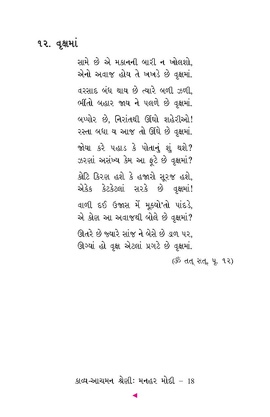 ૧૨. વૃક્ષમાં
સામે છે એ મકાનની બારી ન ખોલશો,
એનો અવાજ હોય તે ખખડે છે વૃક્ષમાં.
વરસાદ બંધ થાય છે ત્યારે બળી ઝળી,
ભીંતો બહાર જાય ને પલળે છે વૃક્ષમાં.
બપ્પોર છે, નિરાંતથી ઊંઘો શહેરીઓ!
રસ્તા બધા ય આજ તો ઊંઘે છે વૃક્ષમાં.
જોયા કરે પહાડ કે પોતાનું શું થશે?
ઝરણાં અસંખ્ય કેમ આ ફૂટે છે વૃક્ષમાં?
કોટિ કિરણ હશે કે હજારો સૂરજ હશે,
એકેક કેટકેટલાં સરકે છે વૃક્ષમાં!
વાળી દઈ ઉજાસ મેં મૂક્યો'તો પાંદડે,
એ કોણ આ અવાજથી બોલે છે વૃક્ષમાં?
ઊતરે છે જ્યારે સાંજ ને બેસે છે ડાળ પર,
ઊગ્યાં હો વૃક્ષ એટલાં પ્રગટે છે વૃક્ષમાં.
(ૐ તત્ સત્, પૃ. ૧૨)
કાવ્ય-આચમન શ્રેણીઃ મનહર મોદી – 18